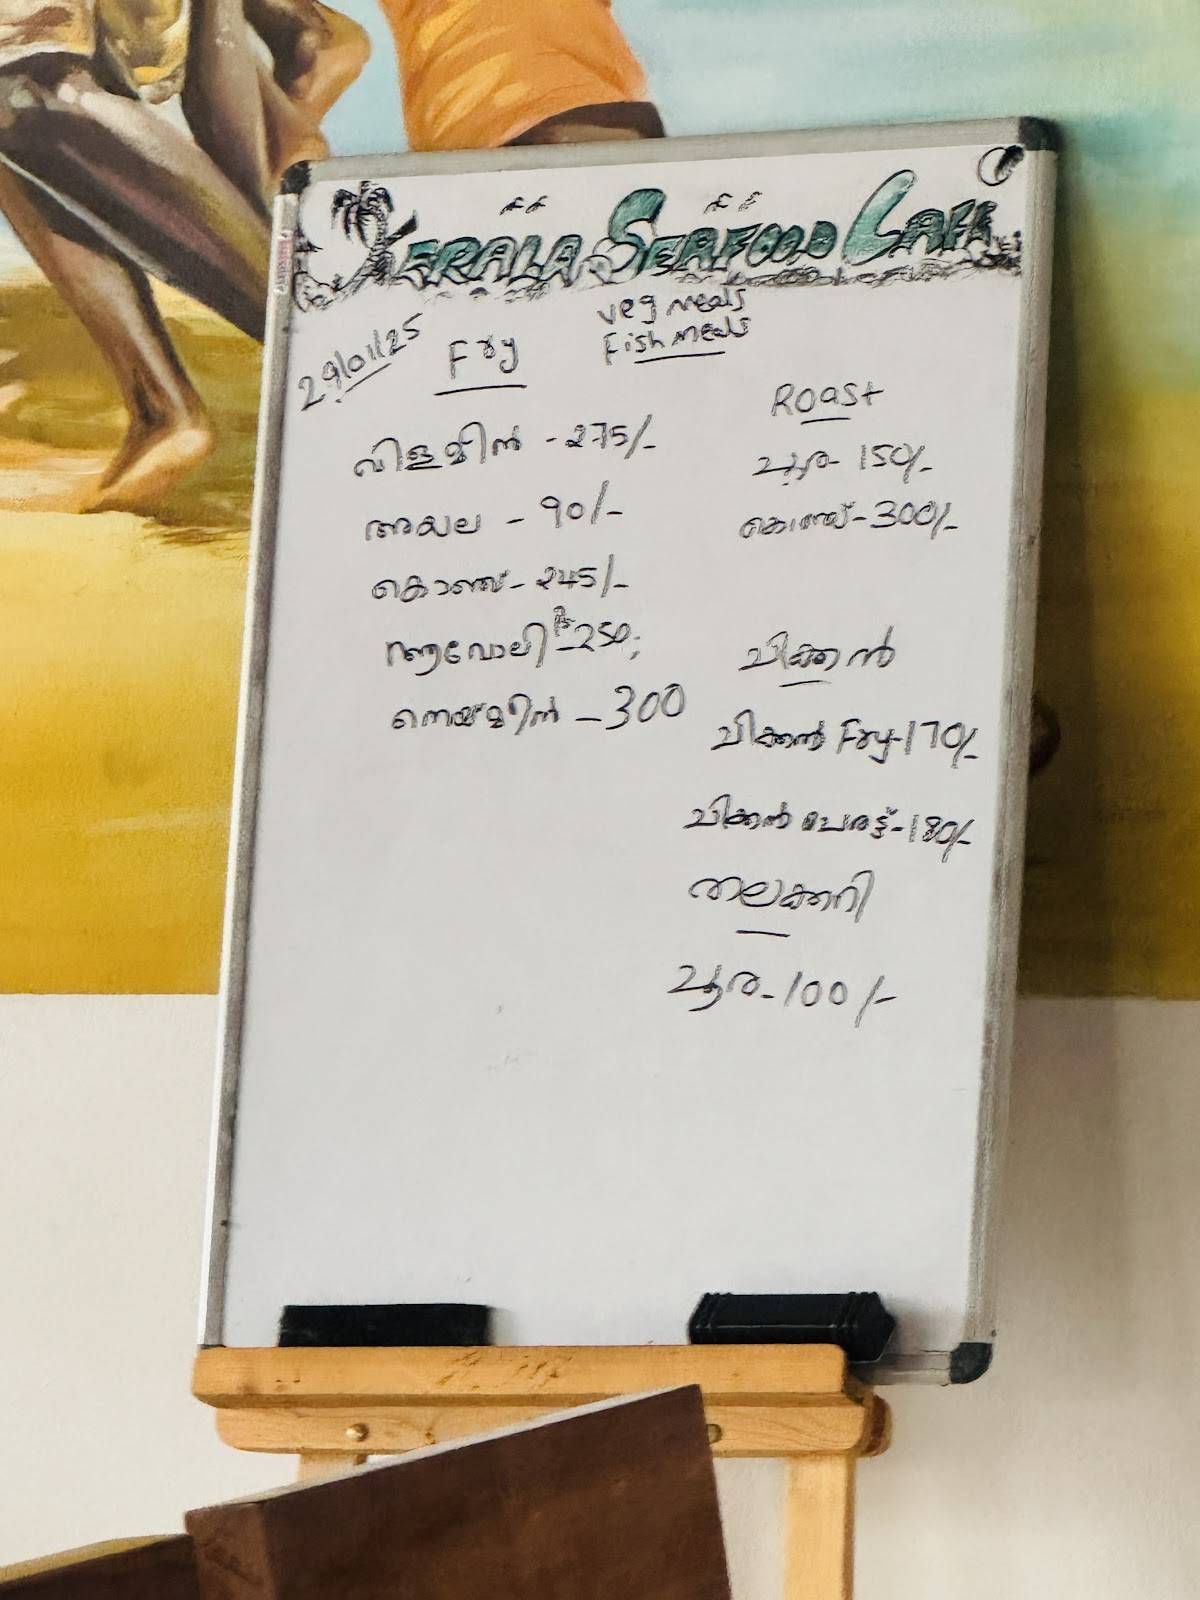 KERALA SEAFOOD CAFE
29/01/25
veg meals
Fish meals
Fry
വിളമീൻ - 275/-
അയല - 90/-
കൊഞ്ച് - 245/-
ആവോലി - 250;
നെയ്മീൻ - 300
Roast
ചൂര - 150/-
കൊഞ്ച് - 300/-
ചിക്കൻ
ചിക്കൻ Fry - 170/-
ചിക്കൻ പേരട്ട് - 180/-
തലക്കറി
ചൂര - 100/-